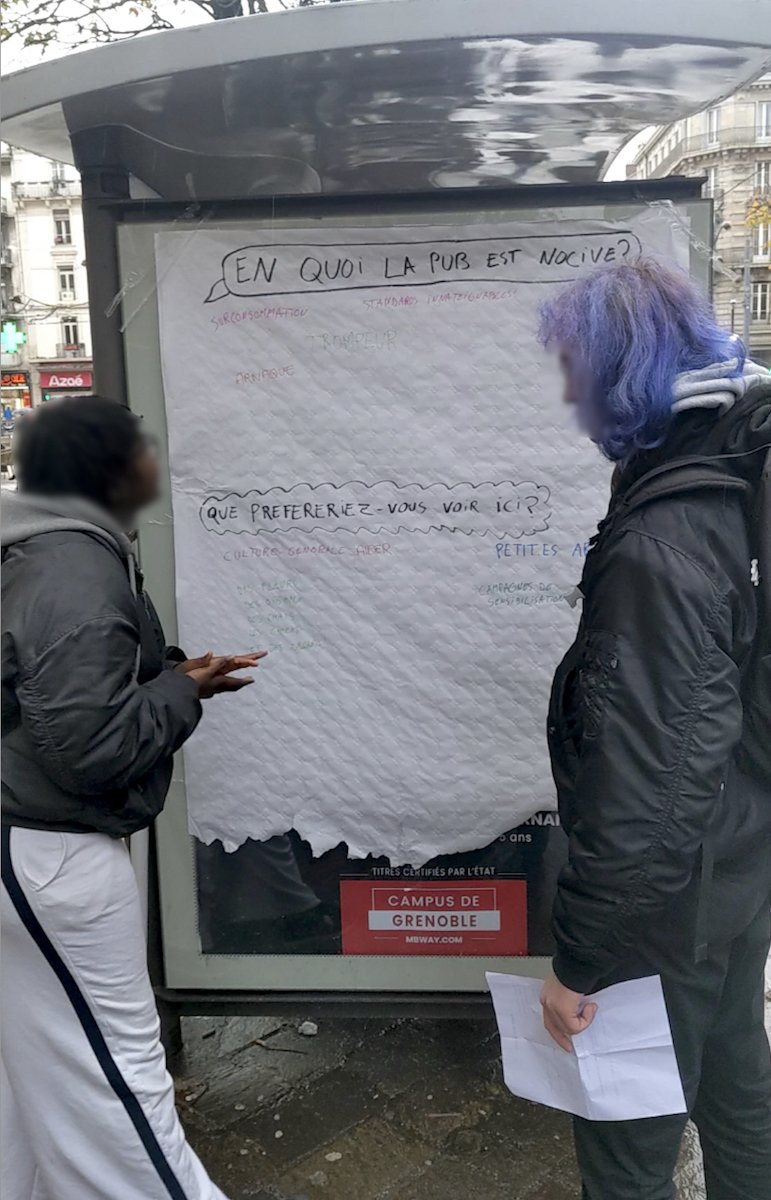 EN QUOI LA PUB EST NOCIVE?
SURCONSOMMATION
STANDARDS INNATEIGNABLES
TROMPEUR
ARNAQUE
QUE PREFERERIEZ-VOUS VOIR ICI?
CULTURE GENERALE
PETITES
CAMPAGNES DE
SENSIBILISATION
DES FLEURS
ans
TITRES CERTIFIÉS PAR L'ÉTAT
CAMPUS DE
GRENOBLE
MBWAY.COM
Azaé